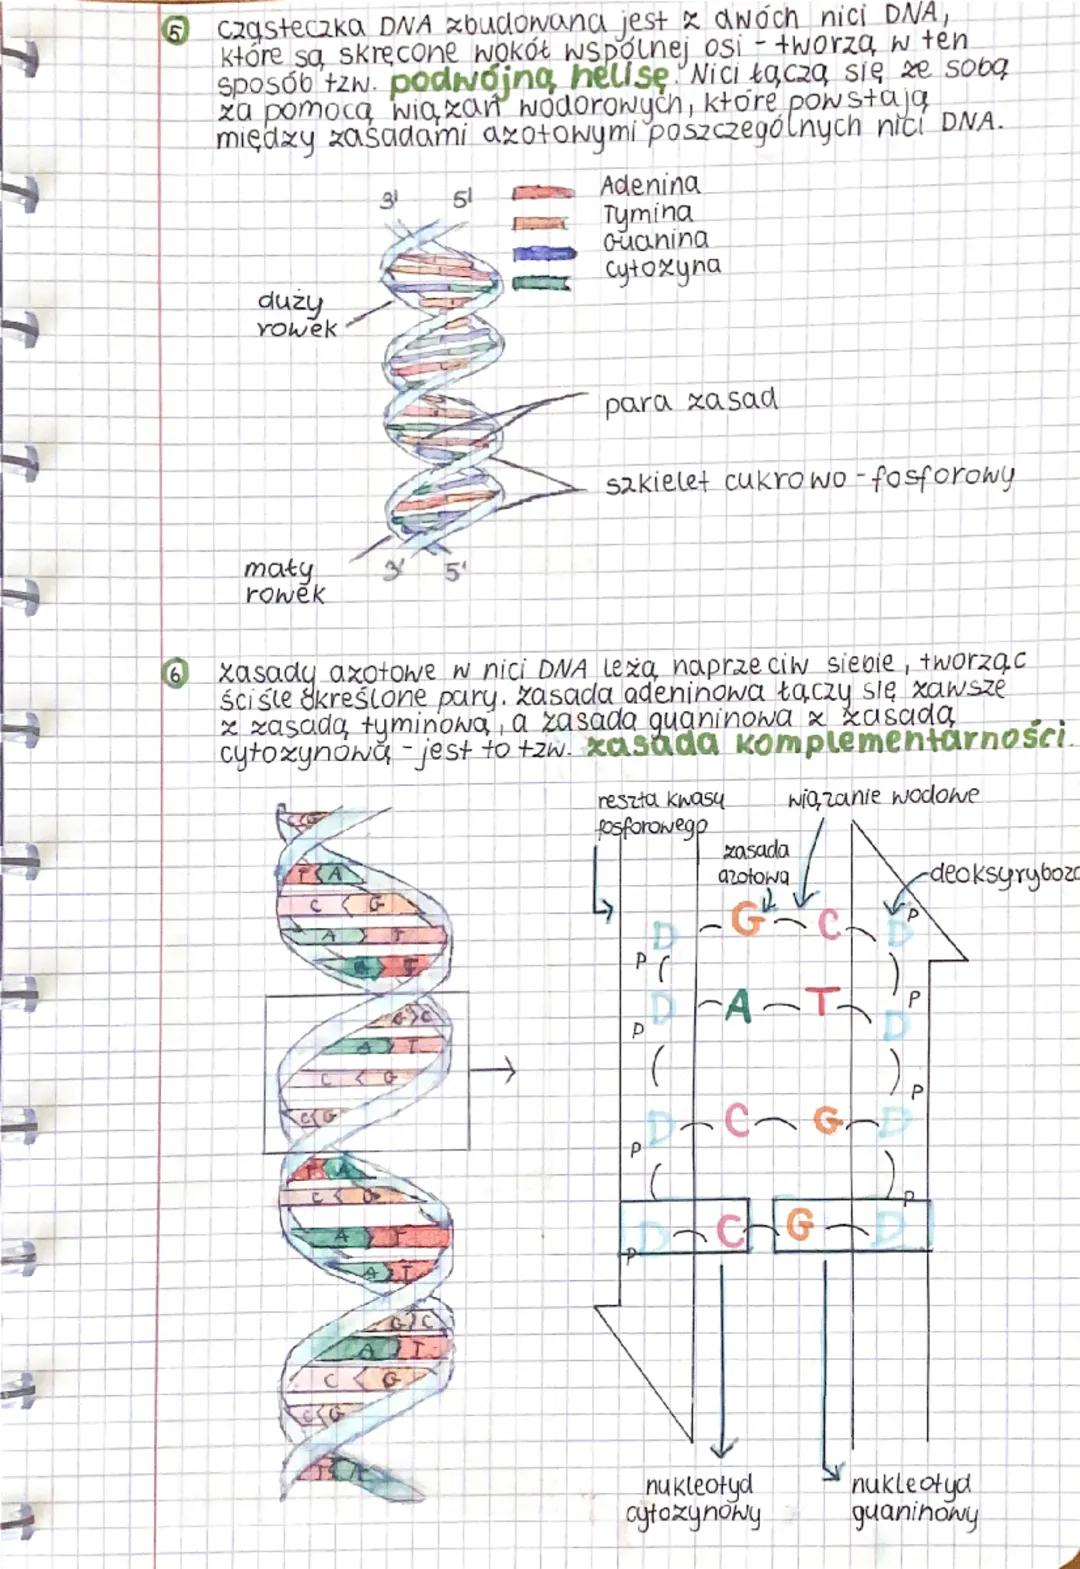 5 cząsteczka DNA zbudowana jest z dwóch nici DNA,
które są skręcone wokół wspólnej osi - tworzą w ten
sposób tzw. podwójną helisę. Nici łączą się ze sobą
za pomocą wiązań wodorowych, które powstają
między zasadami azotowymi poszczególnych nici DNA.
3' 5'
Adenina
Tymina
Guanina
Cytozyna
duży
rowek
para zasad
szkielet cukrowo - fosforowy
mały
rowek
3' 5'
6 zasady azotowe w nici DNA leżą naprzeciw siebie, tworząc
ściśle określone pary. zasada adeninowa łączy się zawsze
z zasadą tyminową, a zasada guaninowa z zasadą
cytozynową - jest to tzw. zasada komplementarności.
reszta kwasu
fosforowego
wiązanie wodowe
zasada
azotowa
deoksyryboz
T A
C G
A T
G C
A T
C G
C G
T A
C G
A T
A T
G C
A T
C G
C G
D G C D P
P
D A T D P
P
D C G D P
P
D C G D P
P
nukleotyd
cytozynowy
nukleotyd
guaninowy